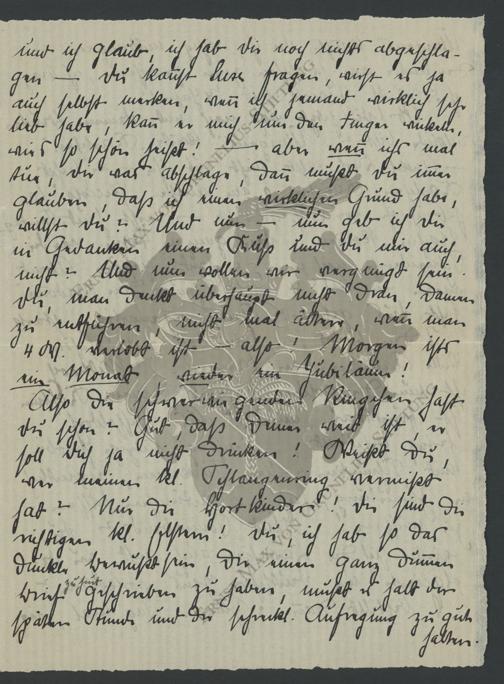 und ich glaub, ich hab dir noch nichts abgeschla-
gen — Du kannst Suse fragen, wirst es ja
auch selbst merken, weñ ich jemand wirklich sehr
lieb habe, kañ er mich um den Finger wickeln,
wie's so schön heißt! — aber weñ ich's mal
tue, dir was abschlage, dañ mußt du im̄er
glauben, daß ich einen wirklichen Grund habe,
willst du? Und nun — nun geb ich dir
in Gedanken einen Kuß und du mir auch,
nicht? Und nun wollen wir vergnügt sein.
Du, man denkt überhaupt nicht dran, Damen
zu entführen, nicht mal ältere, weñ man
4 W. verlobt ist — also! Morgen ist's
ein Monat wieder ein Jubiläum!
Also die schwerwiegenden Ringchen hast
du schon? Gut, daß deiner weit ist, er
soll dich ja nicht drücken! Weißt du,
wer meinen kl. Schlangenring vermißt
hat? Nur die Hortkinder! die sind die
richtigen kl. Elstern! Du, ich hab so das
dunkle Bewußtsein, dir einen ganz dum̄en
Brief zu heut geschrieben zu haben, mußt es halt der
späten Stunde und der schreckl. Aufregung zu gut
halten.